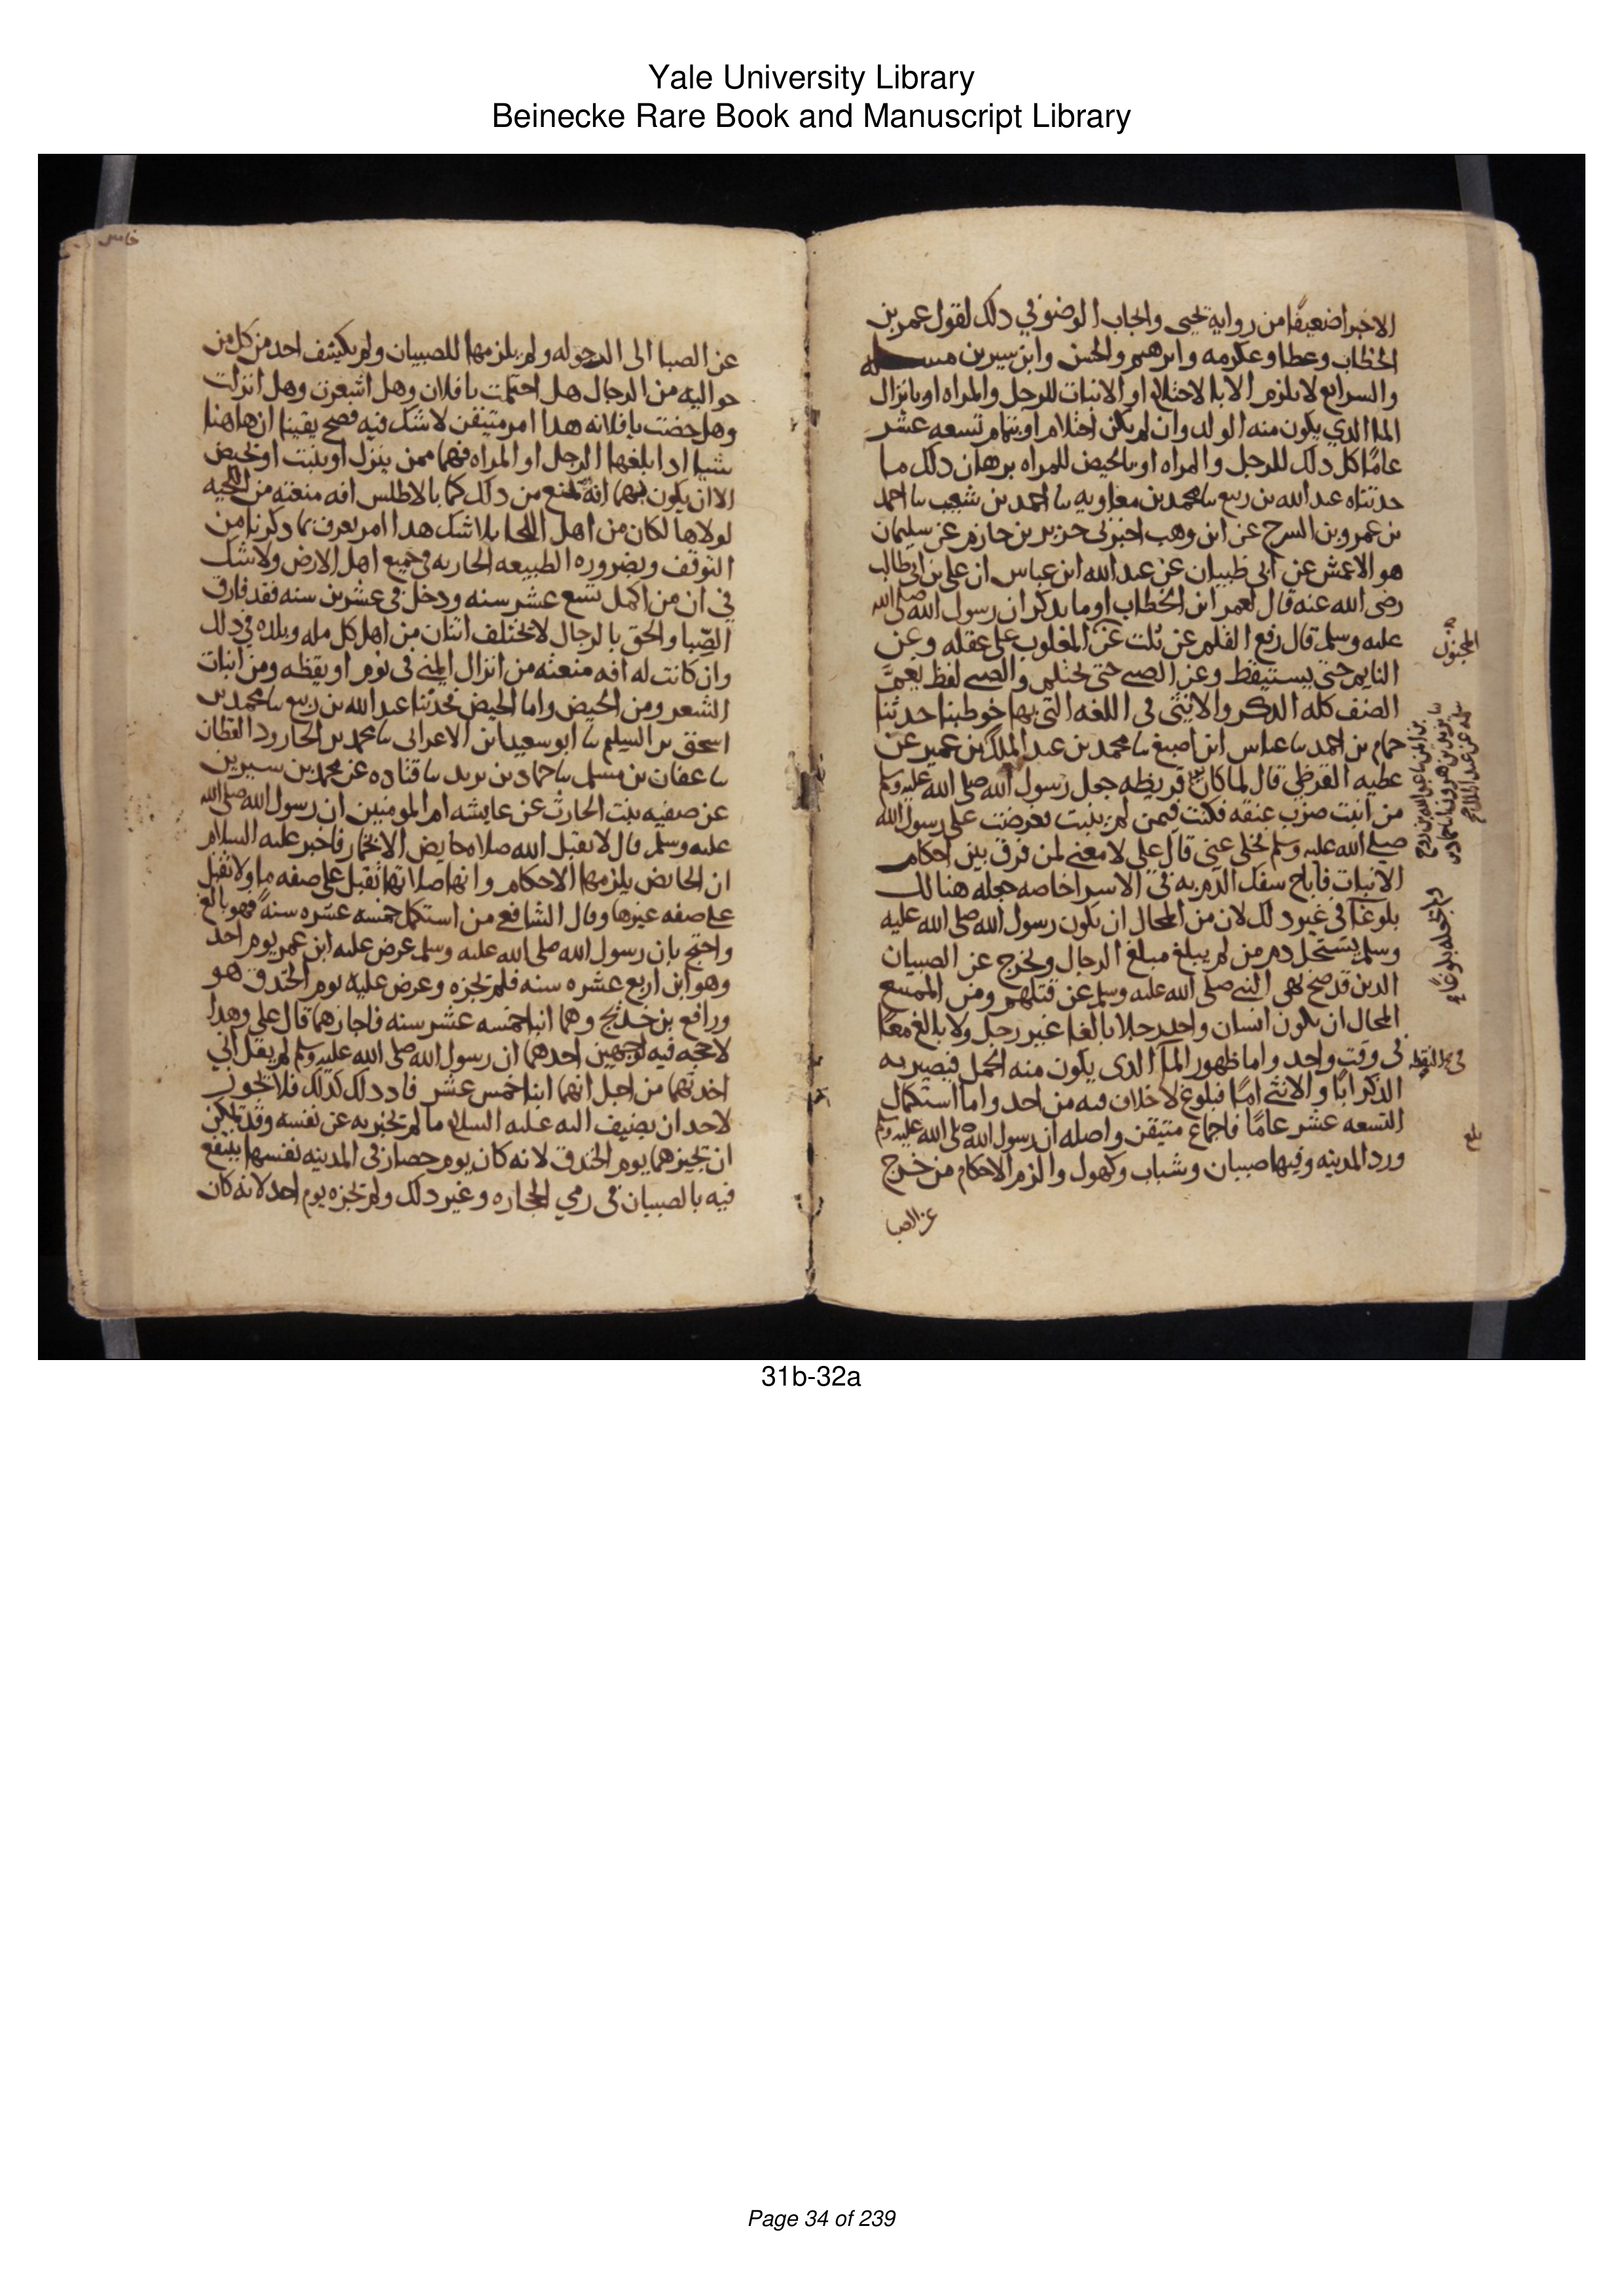 Yale University Library
Beinecke Rare Book and Manuscript Library
الاخبراضعيفا من رواية يحيى وايجاب الوضو في دلك لقول عمر بن
الخطاب وعطا وعكرمه وابرهيم والحسن وابن سيرين مسله
والسرايع لا يلزم الا بالاحتلام او الانبات للرجل والمراه او بانزال
الما الدي يكون منه الولد وان لم يكن احتلام او بتمام تسعه عشر
عامًا كل دلك للرجل والمراه او بالحيض للمراه برهان دلك ما
حدثناه عبد الله بن ربيع ىا محمد بن معاويه ىا احمد بن شعيب ىا احمد
بن عمرو بن السرح عن ابن وهب اخبرني جرير بن حازم عن سليمان
هو الاعمش عن ابي ظبيان عن عبد الله ابن عباس ان علي بن ابي طالب
رضى الله عنه قال لعمر ابن الخطاب اوما يدكر ان رسول الله صلى الله
عليه وسلم قال رفع القلم عن ثلث عن المغلوب على عقله وعن
المجنون
النايم حتى يستيقظ وعن الصبي حتى يحتلم والصبي لفظ يعم
الصنف كله الدكر والانثى في اللغه التي بها خوطبنا حدثنا
حمام بن احمد ىا عباس ابن اصبغ ىا محمد بن عبد الملك بن عمير عن
بن ايمن ىا عبد الله بن روح
ىا يزيد بن هرون ىا حماد بن
سلمه عن عبد الملك
عطيه القرظي قال لما كان قريظه جعل رسول الله صلى الله عليه وسلم
من انبت ضرب عنقه فكنت فيمن لم ينبت فعرضت على رسول الله
صلى الله عليه وسلم فخلى عني قال علي لا معنى لمن فرق بين احكام
الانبات فاباح سفك الدم به في الاسرا خاصه جعله هنالك
بلوغا في غير دلك لان من المحال ان يكون رسول الله صلى الله عليه
وسلم يستحل دم من لم يبلغ مبلغ الرجال ويخرج عن الصبيان
الدين قد صح نهى النبي صلى الله عليه وسلم عن قتلهم ومن الممتنع
المحال ان يكون انسان واحد رجلا بالغا غير رجل ولا بالغ معًا
في وقت واحد واما ظهور الما الدى يكون منه الحمل فيصير به
في اليقظه
الدكر ابًا والانثى امًا فبلوغ لا خلاف فيه من احد واما استكمال
التسعه عشر عامًا فاجماع متيقن واصله ان رسول الله صلى الله عليه وسلم
بلغ
ورد المدينه وفيها صبيان وشباب وكهول والزم الاحكام من خرج
عن الصبا
عن الصبا الى الرجوله ولم يلزمها للصبيان ولم يكشف احد من كل من
حواليه من الرجال هل احتلمت يا فلان وهل اشعرت وهل انزلت
وهل حضت يا فلانه هدا امر متيقن لا شك فيه فصح يقينا ان هاهنا
شيا ادا بلغها الرجل او المراه فهما ممن ينزل او ينبت او يحيض
الا ان يكون بهما افه تمنع من دلك كما بالاطلس افه منعته من اللحيه
لولاها لكان من اهل اللحا بلا شك هدا امر يعرف بما دكرنا من
التوقف وبضروره الطبيعه الجاريه في جميع اهل الارض ولا شك
في ان من اكمل تسع عشر سنه ودخل في عشرين سنه فقد فارق
الصِّبا والحق بالرجال لا يختلف اثنان من اهل كل مله وبلده في دلك
وان كانت له افه منعته من انزال المني في نوم او يقظه ومن انبات
الشعر ومن الحيض واما الحيض فحدثنا عبد الله بن ربيع ىا محمد بن
اسحق بن السليم ىا ابو سعيد ابن الاعرابى ىا محمد بن الجارود القطان
ىا عفان بن مسلم ىا حماد بن يزيد ىا قتاده عن محمد بن سيرين
عن صفيه بنت الحارث عن عايشه ام المومنين ان رسول الله صلى الله
عليه وسلم قال لا يقبل الله صلاه حايض الا بخمار فاخبر عليه السلام
ان الحايض يلزمها الاحكام وانها صلاتها تقبل على صفه ما ولا تقبل
على صفه غيرها وقال الشافعي من استكمل خمسه عشره سنةً فهو بالغ
واحتج بان رسول الله صلى الله عليه وسلم عرض عليه ابن عمر يوم احد
وهو ابن اربع عشره سنه فلم يجزه وعرض عليه يوم الخندق هو
ورافع بن خديج وهما ابنا خمسه عشر سنه فاجازهما قال علي وهدا
لا حجه فيه لوجهين احدهما ان رسول الله صلى الله عليه وسلم لم يقل اني
اجزتهما من اجل انهما ابنا خمس عشر فاد دلك كدلك فلا يجوز
لاحد ان يضيف اليه عليه السلام ما لم يخبر به عن نفسه وقد يمكن
ان يجيزهما يوم الخندق لانه كان يوم حصار في المدينه نفسها ينتفع
فيه بالصبيان في رمي الحجاره وغير دلك ولم يجزه يوم احد لانه كان
31b-32a
Page 34 of 239